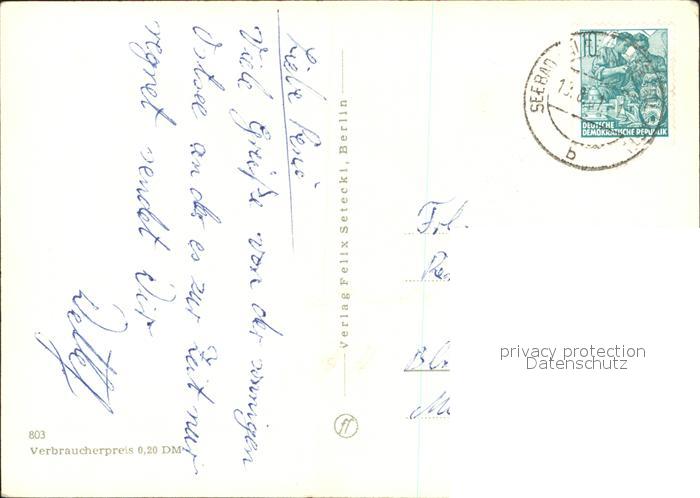 Liebe Reni
Viele Grüße von der sonnigen
Ostsee an der es zur Zeit nur
regnet sendet Dir
Detlef
Verlag Felix Setecki, Berlin
803
Verbraucherpreis 0,20 DM
10
DEUTSCHE
DEMOKRATISCHE REPUBLIK
SEEBAD
13.8
b
Frl.
privacy protection
Datenschutz